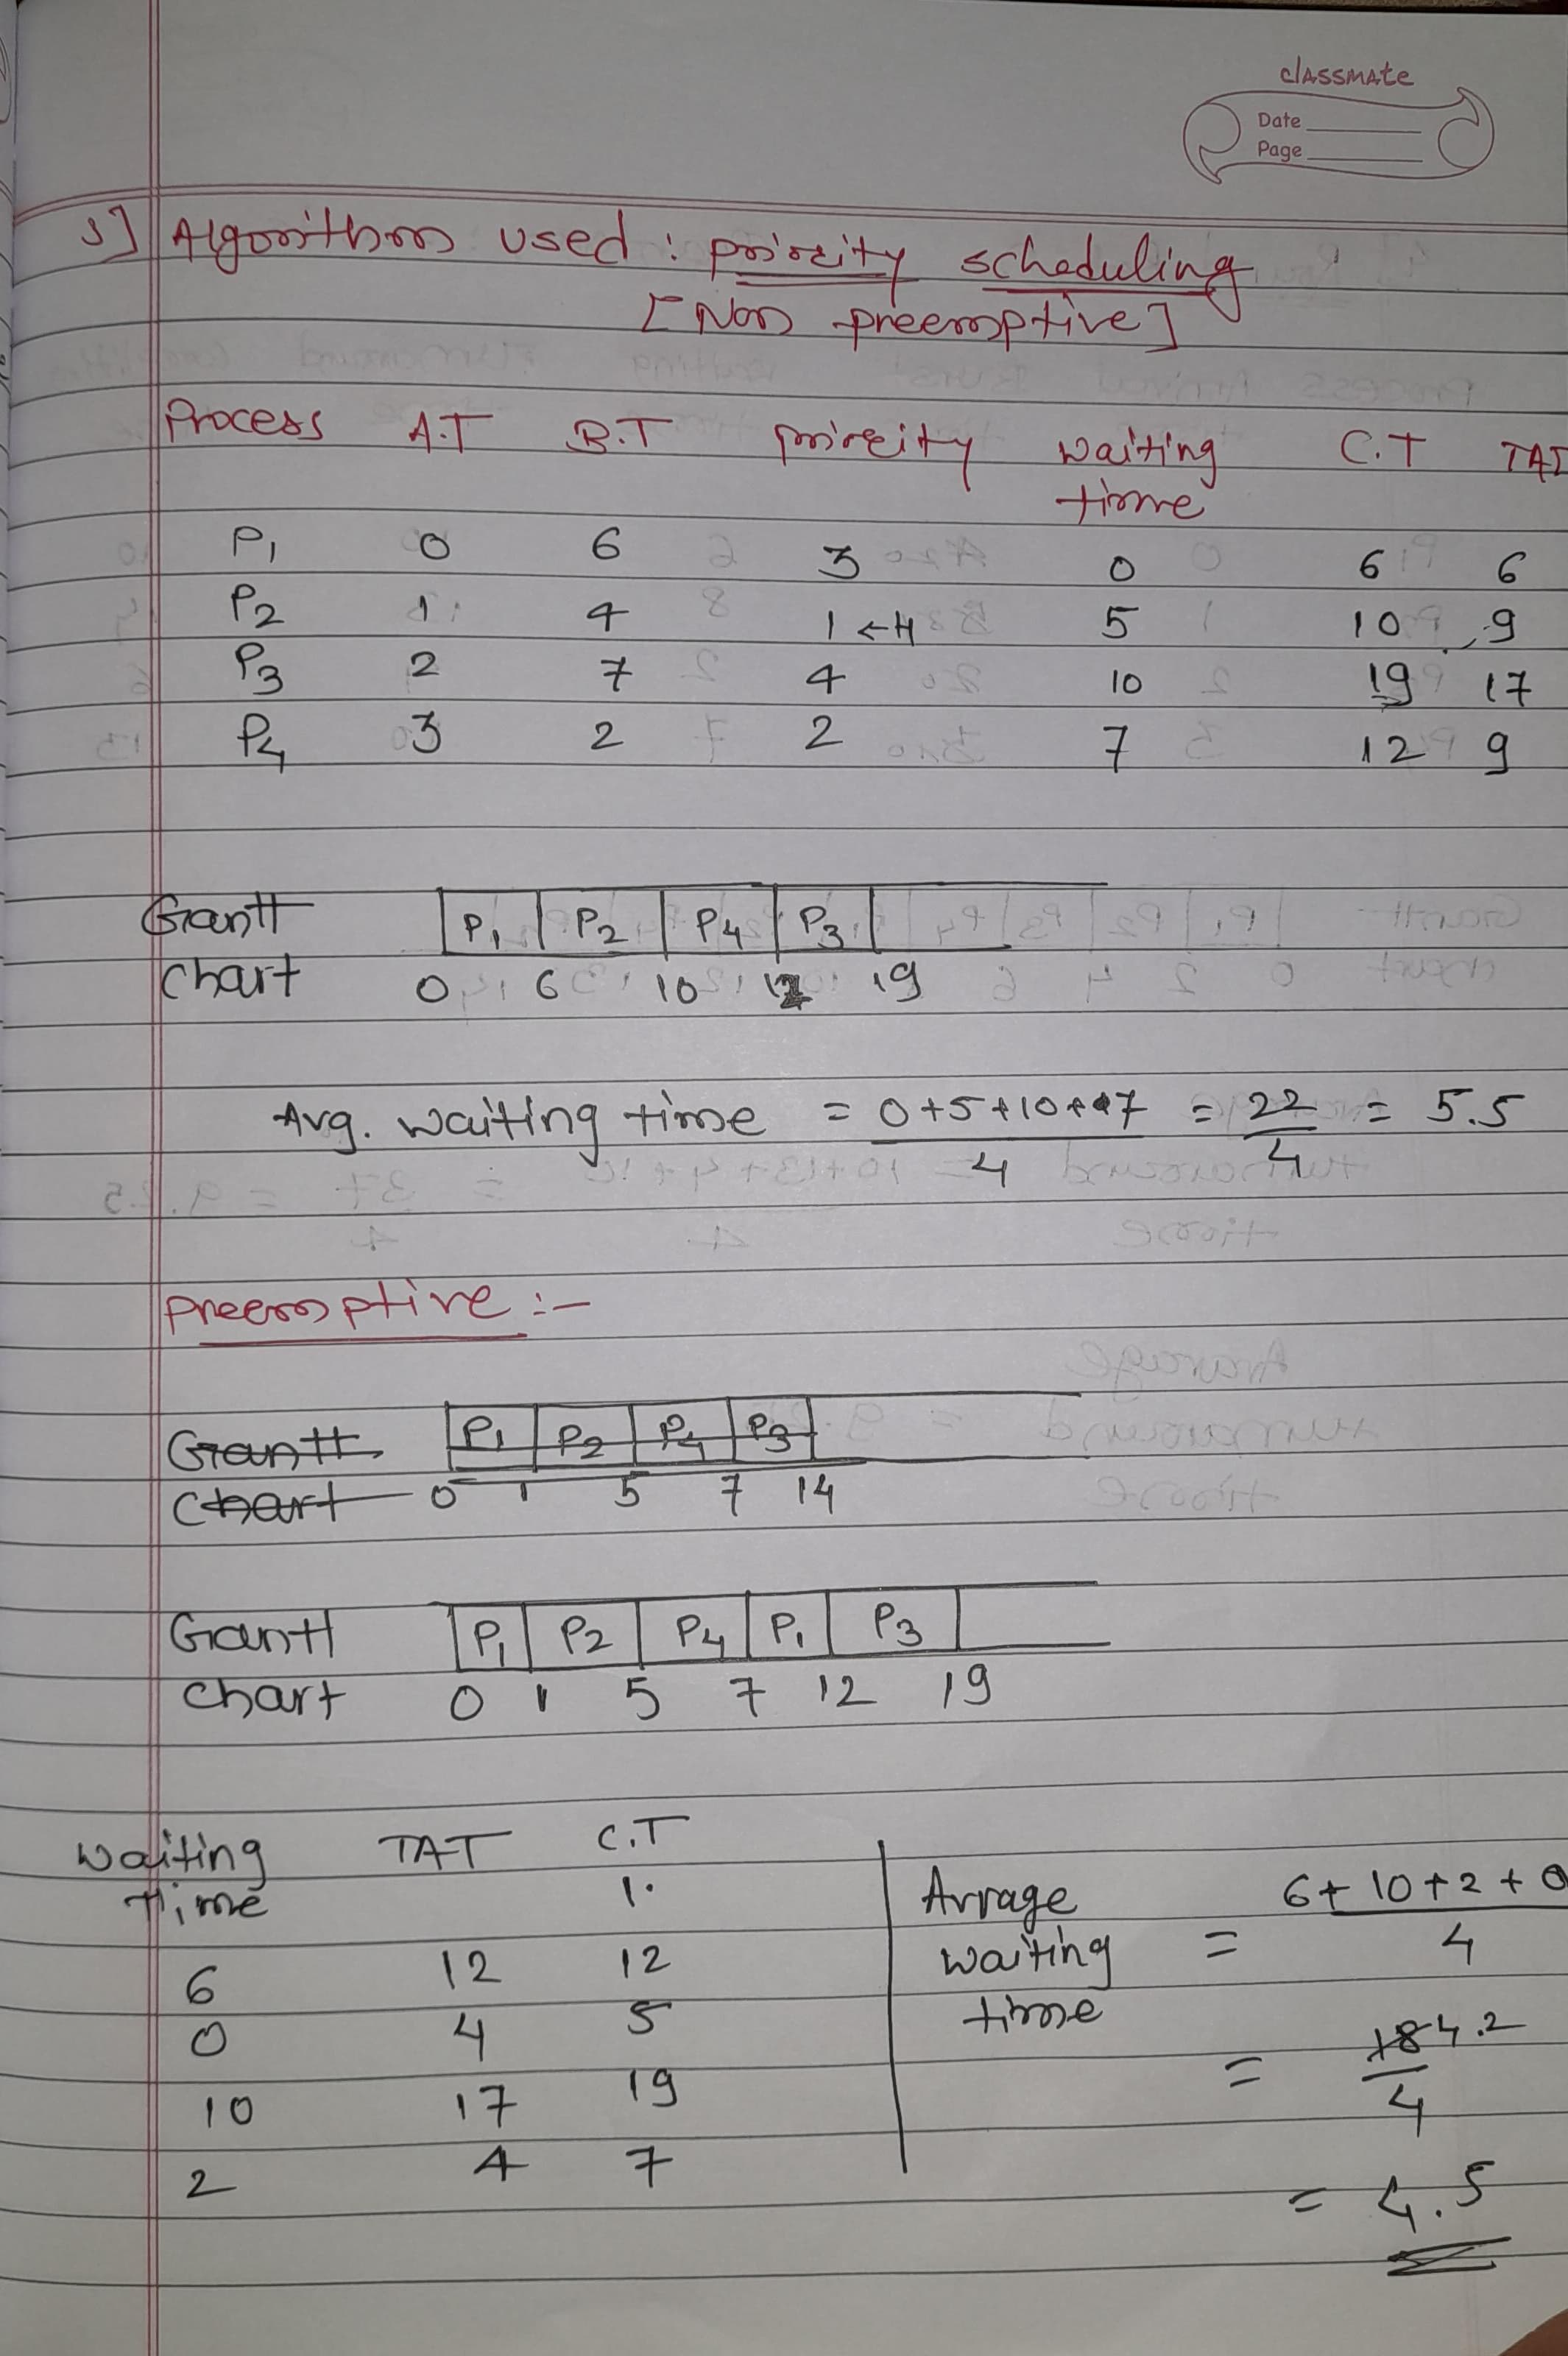 classmate
Date
Page
3] Algorithm used : priority scheduling
[Non preemptive]
Process A.T B.T priority waiting time C.T TAT
P1 0 6 3 0 6 6
P2 1 4 1 ←H 5 10 9
P3 2 7 4 10 19 17
P4 3 2 2 7 12 9
Gantt chart P1 P2 P4 P3
0 6 10 12 19
Avg. waiting time = 0+5+10+7 / 4 = 22 / 4 = 5.5
Preemptive :-
Gantt chart P1 P2 P4 P3
0 1 5 7 14
Gantt chart P1 P2 P4 P1 P3
0 1 5 7 12 19
Waiting Time TAT C.T
1.
6 12 12
0 4 5
10 17 19
2 4 7
Avrage waiting time = 6+10+2+0 / 4
= 18 / 4 4.2
= 4.5